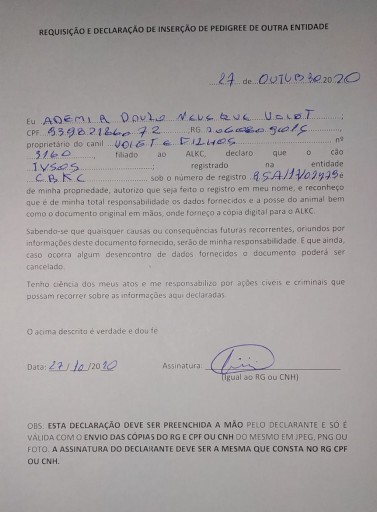 REQUISIÇÃO E DECLARAÇÃO DE INSERÇÃO DE PEDIGREE DE OUTRA ENTIDADE
27 de OUTUBRO 2020
Eu ADEMIR
CPF RG
proprietário do canil VOIGT E FILHOS nº
3160, filiado ao ALKC, declaro que o cão
registrado na entidade
CBKC sob o número de registro e
de minha propriedade, autorizo que seja feito o registro em meu nome, e reconheço
que é de minha total responsabilidade os dados fornecidos e a posse do animal bem
como o documento original em mãos, onde forneço a cópia digital para o ALKC.
Sabendo-se que quaisquer causas ou consequências futuras recorrentes, oriundos por
informações deste documento fornecido, serão de minha responsabilidade. E que ainda,
caso ocorra algum desencontro de dados fornecidos o documento poderá ser
cancelado.
Tenho ciência dos meus atos e me responsabilizo por ações civeis e criminais que
possam recorrer sobre as informações aqui declaradas.
O acima descrito é verdade e dou fé
Data: 27/10/2020 Assinatura
(Igual ao RG ou CNH)
OBS: ESTA DECLARAÇÃO DEVE SER PREENCHIDA A MÃO PELO DECLARANTE E SÓ É
VÁLIDA COM O ENVIO DAS CÓPIAS DO RG E CPF OU CNH DO MESMO EM JPEG, PNG OU
FOTO. A ASSINATURA DO DECLARANTE DEVE SER A MESMA QUE CONSTA NO RG CPF
OU CNH.